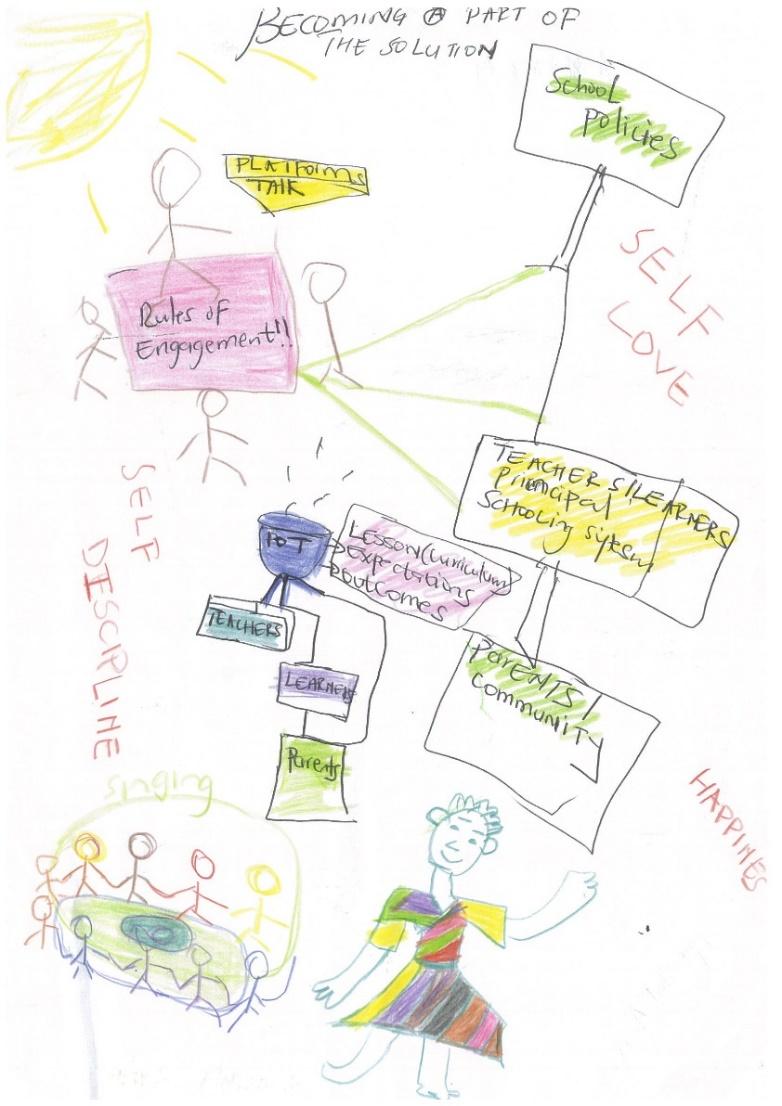 BECOMING A PART OF
THE SOLUTION
School
policies
PLATforms
TALK
SELF
LOVE
Rules of
Engagement!!
TEACHERS/LEARNERS
Principal
Schooling system
SELF
DISCIPLINE
POT
LESSON(Curriculum)
Expectations
outcomes
TEACHERS
LEARNERS
Parents
PARENTS/
Community
HAPPINES
singing